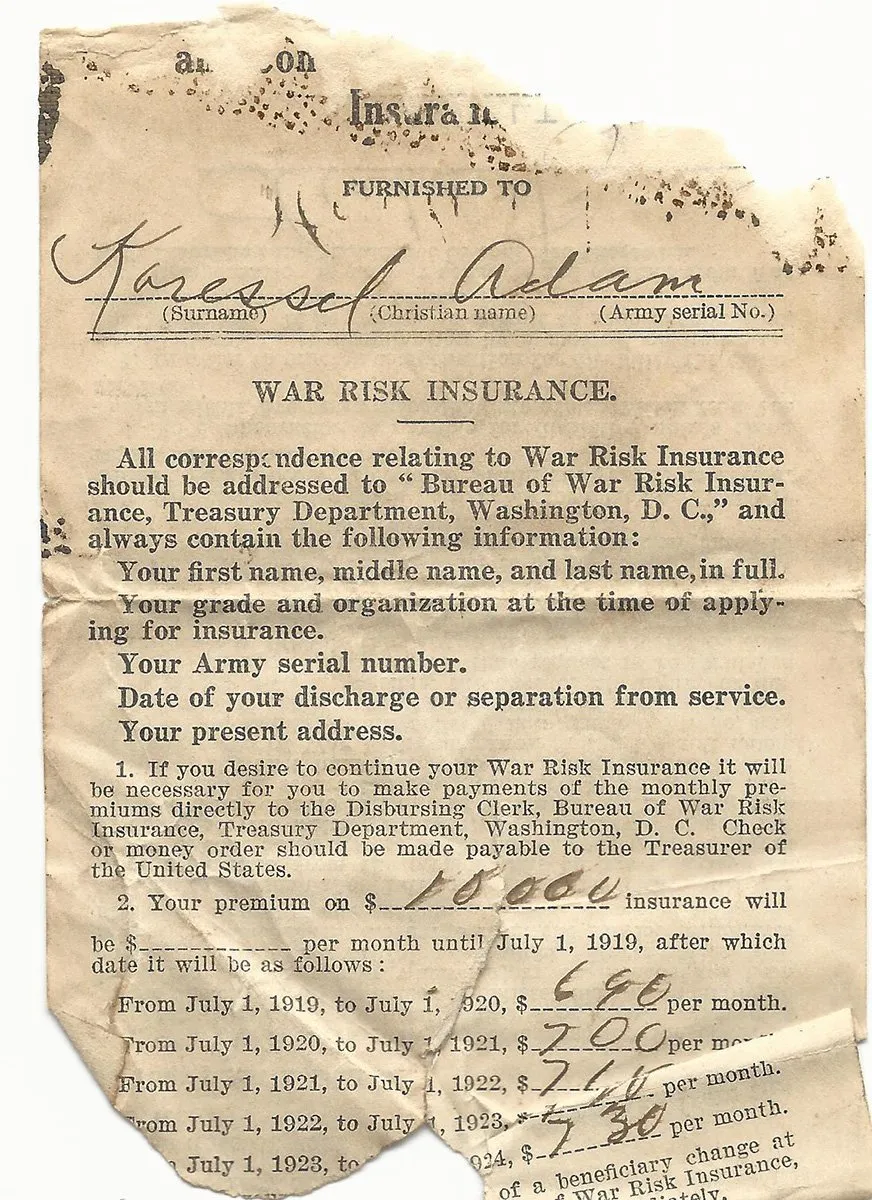 Insuran
FURNISHED TO
Koressel Adam
(Surname) (Christian name) (Army serial No.)
WAR RISK INSURANCE.
All correspondence relating to War Risk Insurance
should be addressed to “ Bureau of War Risk Insur-
ance, Treasury Department, Washington, D. C.,” and
always contain the following information:
Your first name, middle name, and last name, in full.
Your grade and organization at the time of apply-
ing for insurance.
Your Army serial number.
Date of your discharge or separation from service.
Your present address.
1. If you desire to continue your War Risk Insurance it will
be necessary for you to make payments of the monthly pre-
miums directly to the Disbursing Clerk, Bureau of War Risk
Insurance, Treasury Department, Washington, D. C. Check
or money order should be made payable to the Treasurer of
the United States.
2. Your premium on $ 10 000 insurance will
be $ per month until July 1, 1919, after which
date it will be as follows:
From July 1, 1919, to July 1, 1920, $ 6 90 per month.
From July 1, 1920, to July 1, 1921, $ 7 00 per mo
From July 1, 1921, to July 1, 1922, $ 7 10 per month.
From July 1, 1922, to July 1, 1923, $ 7 30 per month.
July 1, 1923, to 924, $
of a beneficiary change at
War Risk Insurance,